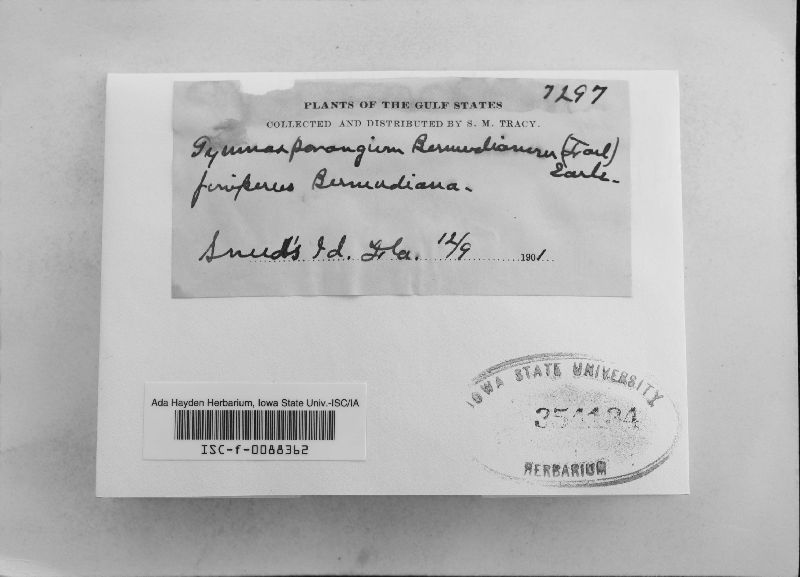 7297
PLANTS OF THE GULF STATES
COLLECTED AND DISTRIBUTED BY S. M. TRACY.
Gymnosporangium Bermudianum (Farl)
Earle.
Juniperus Bermudiana.
Sneed's Id. Fla. 12/9 1901.
IOWA STATE UNIVERSITY
354184
HERBARIUM
Ada Hayden Herbarium, Iowa State Univ.-ISC/IA
ISC-f-0088362